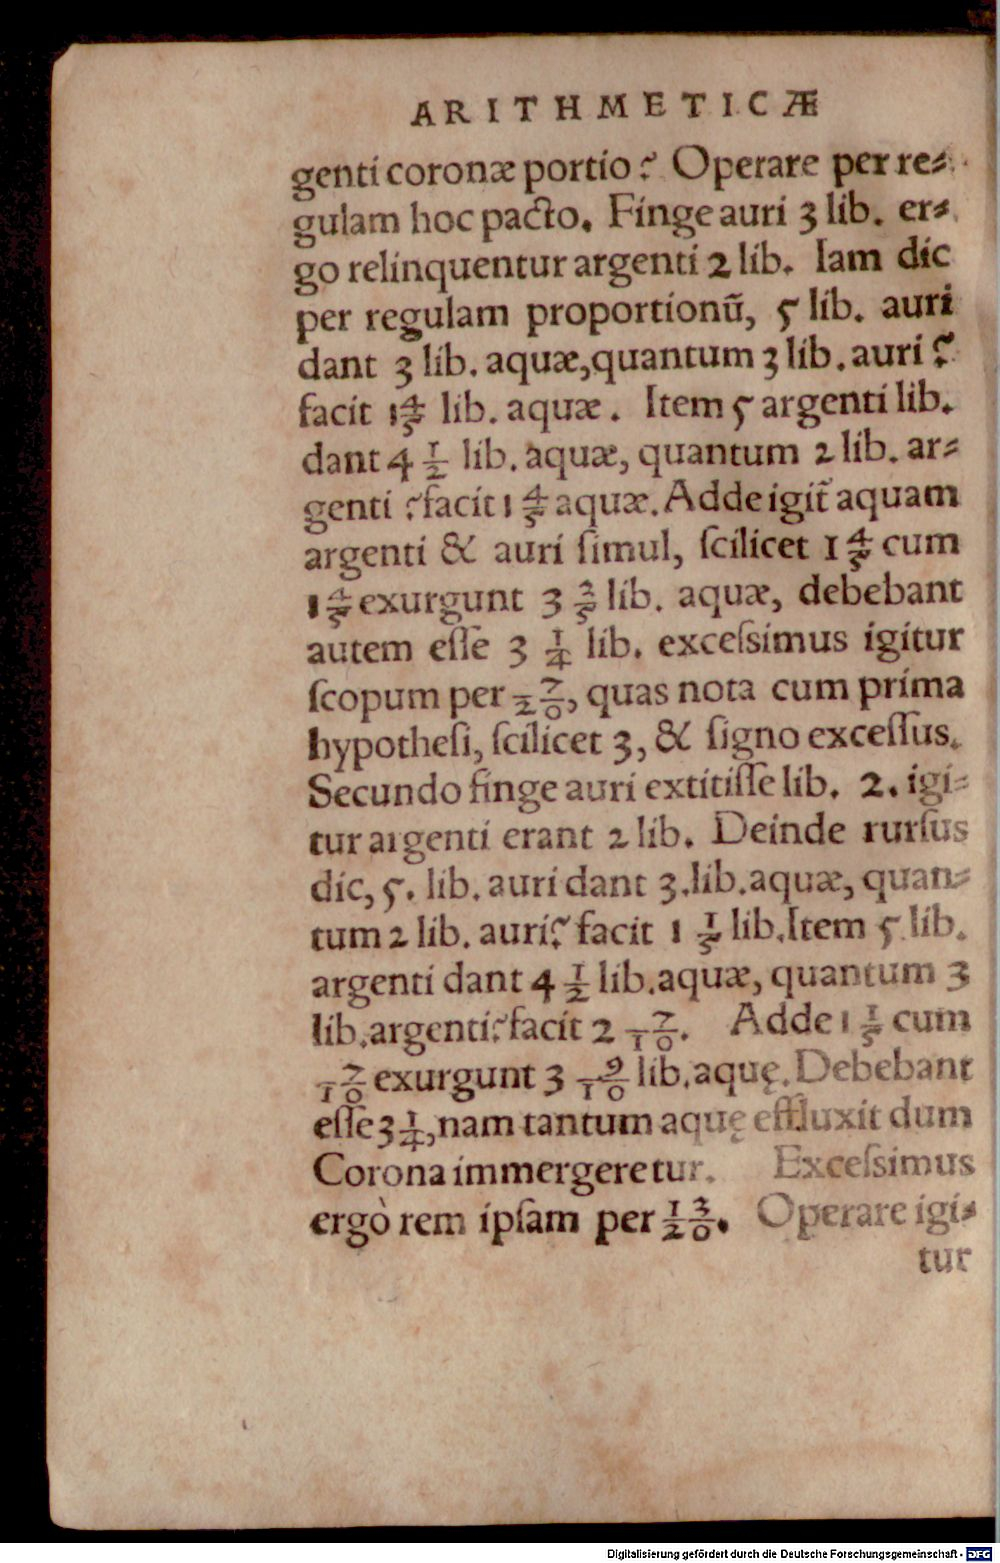 ARITHMETICÆ
genti coronæ portio? Operare per re⸗
gulam hoc pacto. Finge auri 3 lib. er⸗
go relinquentur argenti 2 lib. Iam dic
per regulam proportionũ, 5 lib. auri
dant 3 lib. aquæ,quantum 3 lib. auri?
facit 1 4/5 lib. aquæ. Item 5 argenti lib.
dant 4 1/2 lib. aquæ, quantum 2 lib. ar⸗
genti ?facit 1 4/5 aquæ. Adde igit̃ aquam
argenti & auri ſimul, ſcilicet 1 4/5 cum
1 4/5 exurgunt 3 3/5 lib. aquæ, debebant
autem eſſe 3 1/4 lib. exceſsimus igitur
ſcopum per 7/20, quas nota cum prima
hypotheſi, ſcilicet 3, & ſigno exceſſus.
Secundo finge auri extitiſſe lib. 2. igi⸗
tur argenti erant 2 lib. Deinde rurſus
dic, 5. lib. auri dant 3.lib.aquæ, quan⸗
tum 2 lib. auri? facit 1 1/5 lib.Item 5 lib.
argenti dant 4 1/2 lib.aquæ, quantum 3
lib.argenti?facit 2 7/10. Adde 1 1/5 cum
7/10 exurgunt 3 9/10 lib.aquę. Debebant
eſſe 3 1/4,nam tantum aquę effluxit dum
Corona immergeretur. Exceſsimus
ergò rem ipſam per 13/20. Operare igi⸗
tur
Digitalisierung gefördert durch die Deutsche Forschungsgemeinschaft - DFG